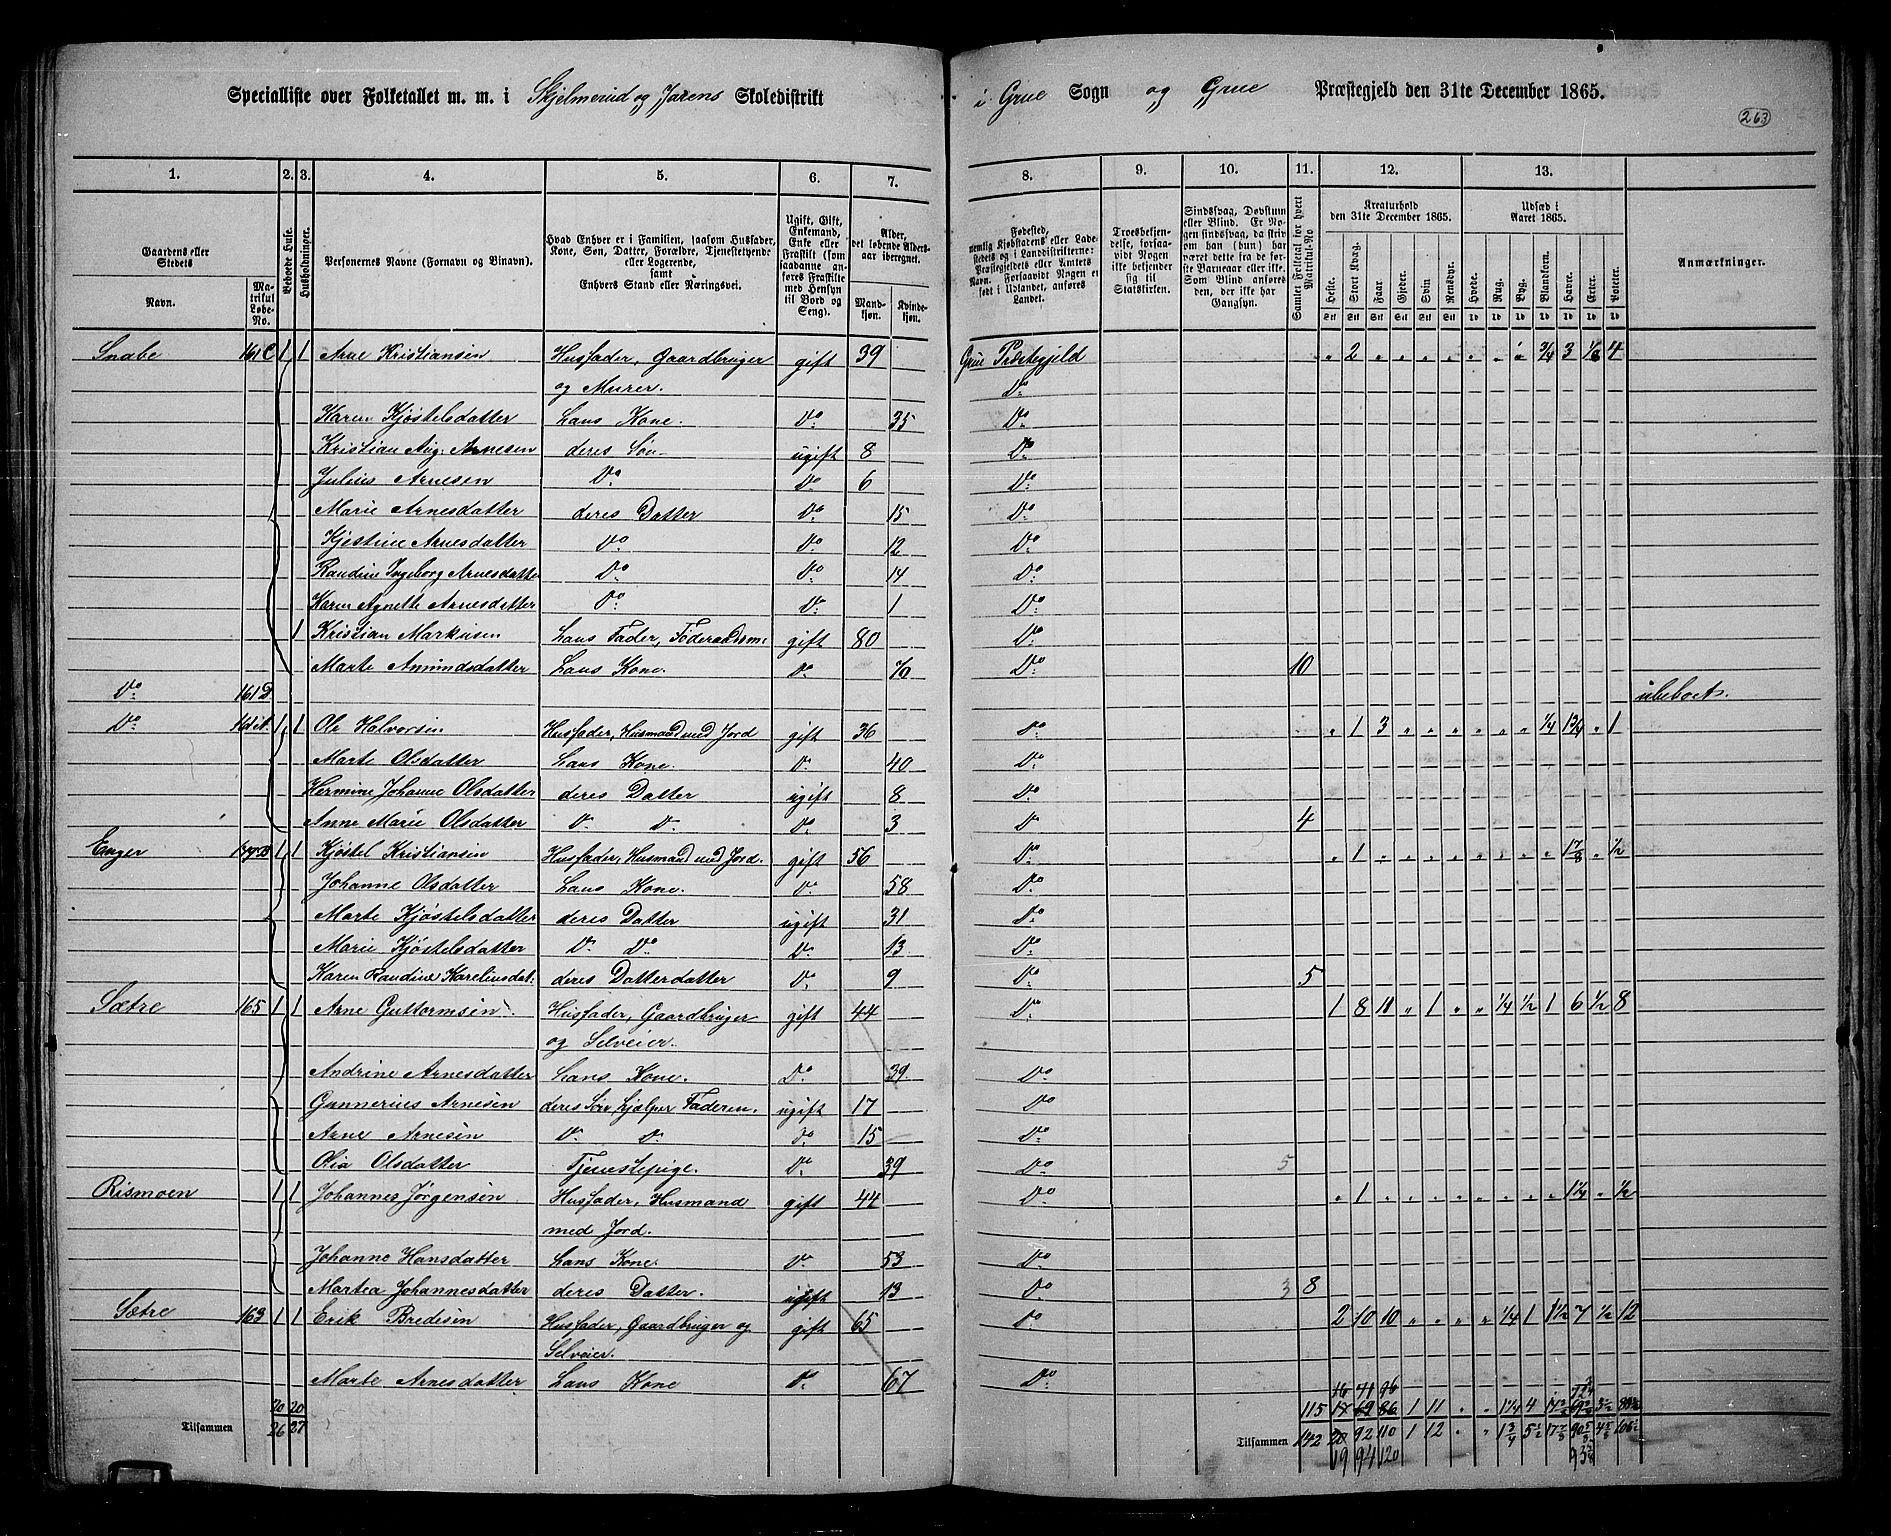 Specialliste over Folketallet m. m. i Skjelmerud og Jarens Skoledistrikt i Grue Sogn og Grue Præstegjeld den 31te December 1865.
263
1. 2. 3. 4. 5. 6. 7. 8. 9. 10. 11. 12. 13.
Gaardens eller Stedets
Navn.
Matrikul Løbe-No.
Beboede Huse.
Husholdninger.
Personernes Navne (Fornavn og Binavn).
Hvad Enhver er i Familien, saasom Husfader, Kone, Søn, Datter, Forældre, Tjenestetyende eller Logerende, samt Enhvers Stand eller Næringsvei.
Ugift, Gift, Enkemand, Enke eller Fraskilt (som saadanne anføres Fraskilte med Hensyn til Bord og Seng).
Alder, det løbende Alders-aar iberegnet.
Mand-kjøn. Kvinde-kjøn.
Fødested, nemlig Kjøbstadens eller Ladestedets og i Landdistrikterne: Præstegjeldets eller Amtets Navn. Forsaavidt Nogen er født i Udlandet, anføres Landet.
Troesbekjendelse, forsaavidt Nogen ikke bekjender sig til Statskirken.
Sindssvag, Døvstum eller Blind. Er Nogen sindssvag, da skriv om han (hun) har været dette fra de første Barneaar eller ikke. Som Blind anføres den, der ikke har Gangsyn.
Samlet Folketal for hvert Matrikul-No
Kreaturhold den 31te December 1865.
Heste. Stort Kvæg. Faar. Gjeder. Svin. Rensdyr.
Udsæd i Aaret 1865.
Hvede. Rug. Byg. Blandkorn. Havre. Erter. Poteter.
Anmærkninger.
Snabe 161C 1 1 Arne Kristiansen Husfader, Gaardbruger gift 39 Grue Præstegjeld 2 3/4 3 1/8 4
og Murer. Do
Karen Kjøstelsdatter Hans Kone. Do 35 Do
Kristian Aug. Arnesen deres Søn ugift 8 Do
Julius Arnesen Do Do 6 Do
Marie Arnesdatter deres Datter Do 15 Do
Kjøstine Arnesdatter Do Do 12 Do
Randine Ingeborg Arnesdatter Do Do 14 Do
Karen Agnette Arnesdatter Do Do 1 Do
1 Kristian Markusen Hans Fader, Føderaadsm: gift 80 Do
Marte Amundsdatter Hans Kone. Do 70 Do 10
Do 161D ubeboet.
Do 1 1 Ole Halvorsen Husfader, Husmand med Jord gift 36 Do 1 3 1/4 1 3/4 1
Marte Olsdatter Hans Kone. Do 40 Do
Hermine Johanne Olsdatter deres Datter ugift 8 Do
Anne Marie Olsdatter D. D. Do 3 D 4
Enger 1 1 Kjøstel Kristiansen Husfader, Husmand med Jord. gift 56 Do 1 1 7/8 1/2
Johanne Olsdatter Hans Kone. Do 58 Do
Marte Kjøstelsdatter deres Datter ugift 31 Do
Marie Kjøstelsdatter D. Do Do 13 Do
Karen Randine Karelinsdat: deres Datterdatter Do 9 Do 5
Sætre 165 1 1 Arne Guttormsen Husfader, Gaardbruger gift 44 Do 1 8 10 1 1/4 1/2 1 6 1/2 8
og Selveier.
Andrine Arnesdatter Hans Kone. Do 39 Do
Gunnerius Arnesen deres Søn hjelper Faderen. ugift 17 Do
Arne Arnesen D. D. Do 15 Do
Olia Olsdatter Tjenestepige. Do 39 Do 5
Rismoen 1 1 Johannes Jørgensen Husfader, Husmand gift 44 Do 1 1 1/4 1/2
med Jord.
Johanne Hansdatter Hans Kone. Do 53 Do
Martea Johannesdatter deres Datter. ugift 13 Do 3 8
Sætre 163 1 1 Erik Bredesen Husfader, Gaardbruger og gift 65 Do 2 10 10 1/4 1 1 1/2 7 1/2 12
Selveier.
Marte Arnesdatter Hans Kone Do 67 Do
20 20 115 1 11 1 1/4 4
Tilsammen 26 27 Tilsammen 142 20 92 110 1 12 1 3/4 5 1/2
19 94 120